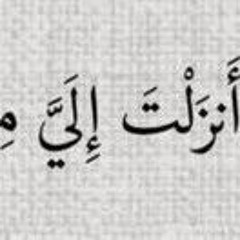 أَنزَلْتَ إِلَيَّ مِ